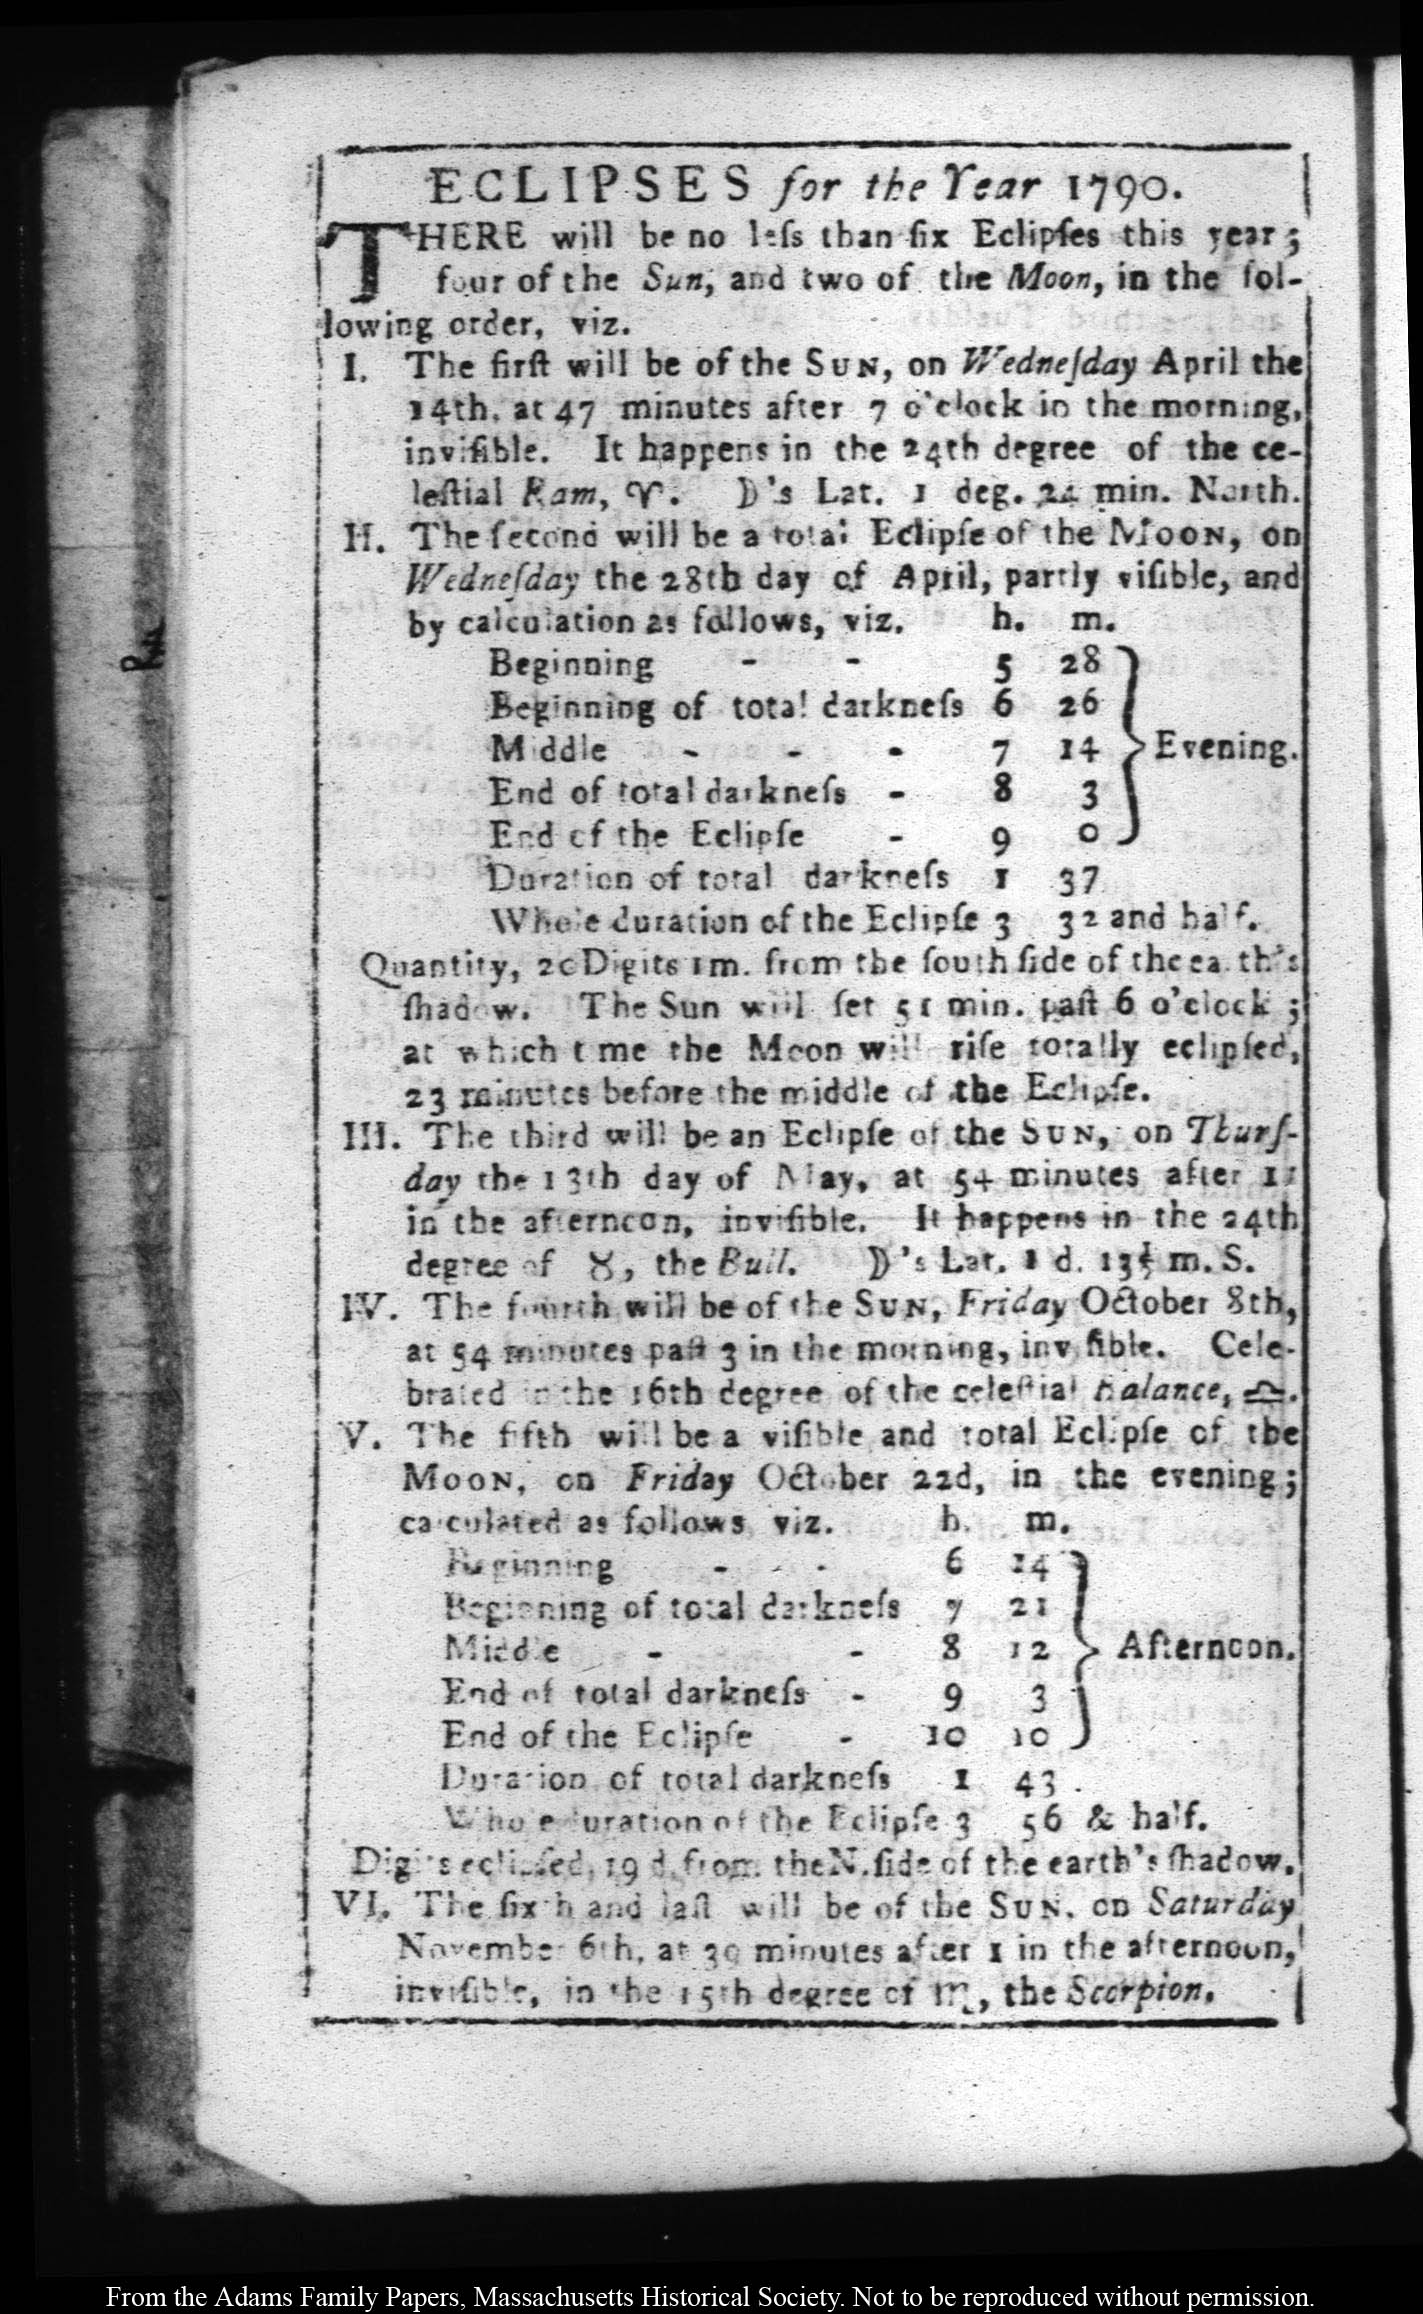 ECLIPSES for the Year 1790.
THERE will be no leſs than ſix Eclipſes this year;
four of the Sun, and two of the Moon, in the fol-
lowing order, viz.
I. The firſt will be of the SUN, on Wedneſday April the
14th. at 47 minutes after 7 o'clock in the morning,
inviſible. It happens in the 24th degree of the ce-
leſtial Ram, ♈. ☽'s Lat. 1 deg. min. North.
II. The ſecond will be a total Eclipſe of the MOON, on
Wedneſday the 28th day of April, partly viſible, and
by calculation as follows, viz. h. m.
Beginning - - 5 28
Beginning of total darkneſs 6 26
Middle - - - 7 14 } Evening.
End of total darkneſs - 8 3
End of the Eclipſe - 9 0
Duration of total darkneſs 1 37
Whole duration of the Eclipſe 3 32 and half.
Quantity, 20 Digits 1m. from the ſouth ſide of the earth's
ſhadow. The Sun will ſet 51 min. paſt 6 o'clock;
at which time the Moon will riſe totally eclipſed,
23 minutes before the middle of the Eclipſe.
III. The third will be an Eclipſe of the SUN, on Thurſ-
day the 13th day of May, at 54 minutes after 11
in the afternoon, inviſible. It happens in the 24th
degree of ♉, the Bull. ☽'s Lat. 1 d. 13½ m. S.
IV. The fourth will be of the SUN, Friday October 8th,
at 54 minutes paſt 3 in the morning, inviſible. Cele-
brated in the 16th degree of the celeſtial Balance, ♎.
V. The fifth will be a viſible and total Eclipſe of the
MOON, on Friday October 22d, in the evening;
calculated as follows viz. h. m.
Beginning - - - 6 14
Beginning of total darkneſs 7 21
Middle - - 8 12 } Afternoon.
End of total darkneſs - 9 3
End of the Eclipſe - 10 10
Duration of total darkneſs 1 43.
Whole duration of the Eclipſe 3 56 & half.
Digits eclipſed, 19 d. from the N. ſide of the earth's ſhadow.
VI. The ſixth and laſt will be of the SUN, on Saturday
November 6th, at 39 minutes after 1 in the afternoon,
inviſible, in the 15th degree of ♏, the Scorpion.
From the Adams Family Papers, Massachusetts Historical Society. Not to be reproduced without permission.